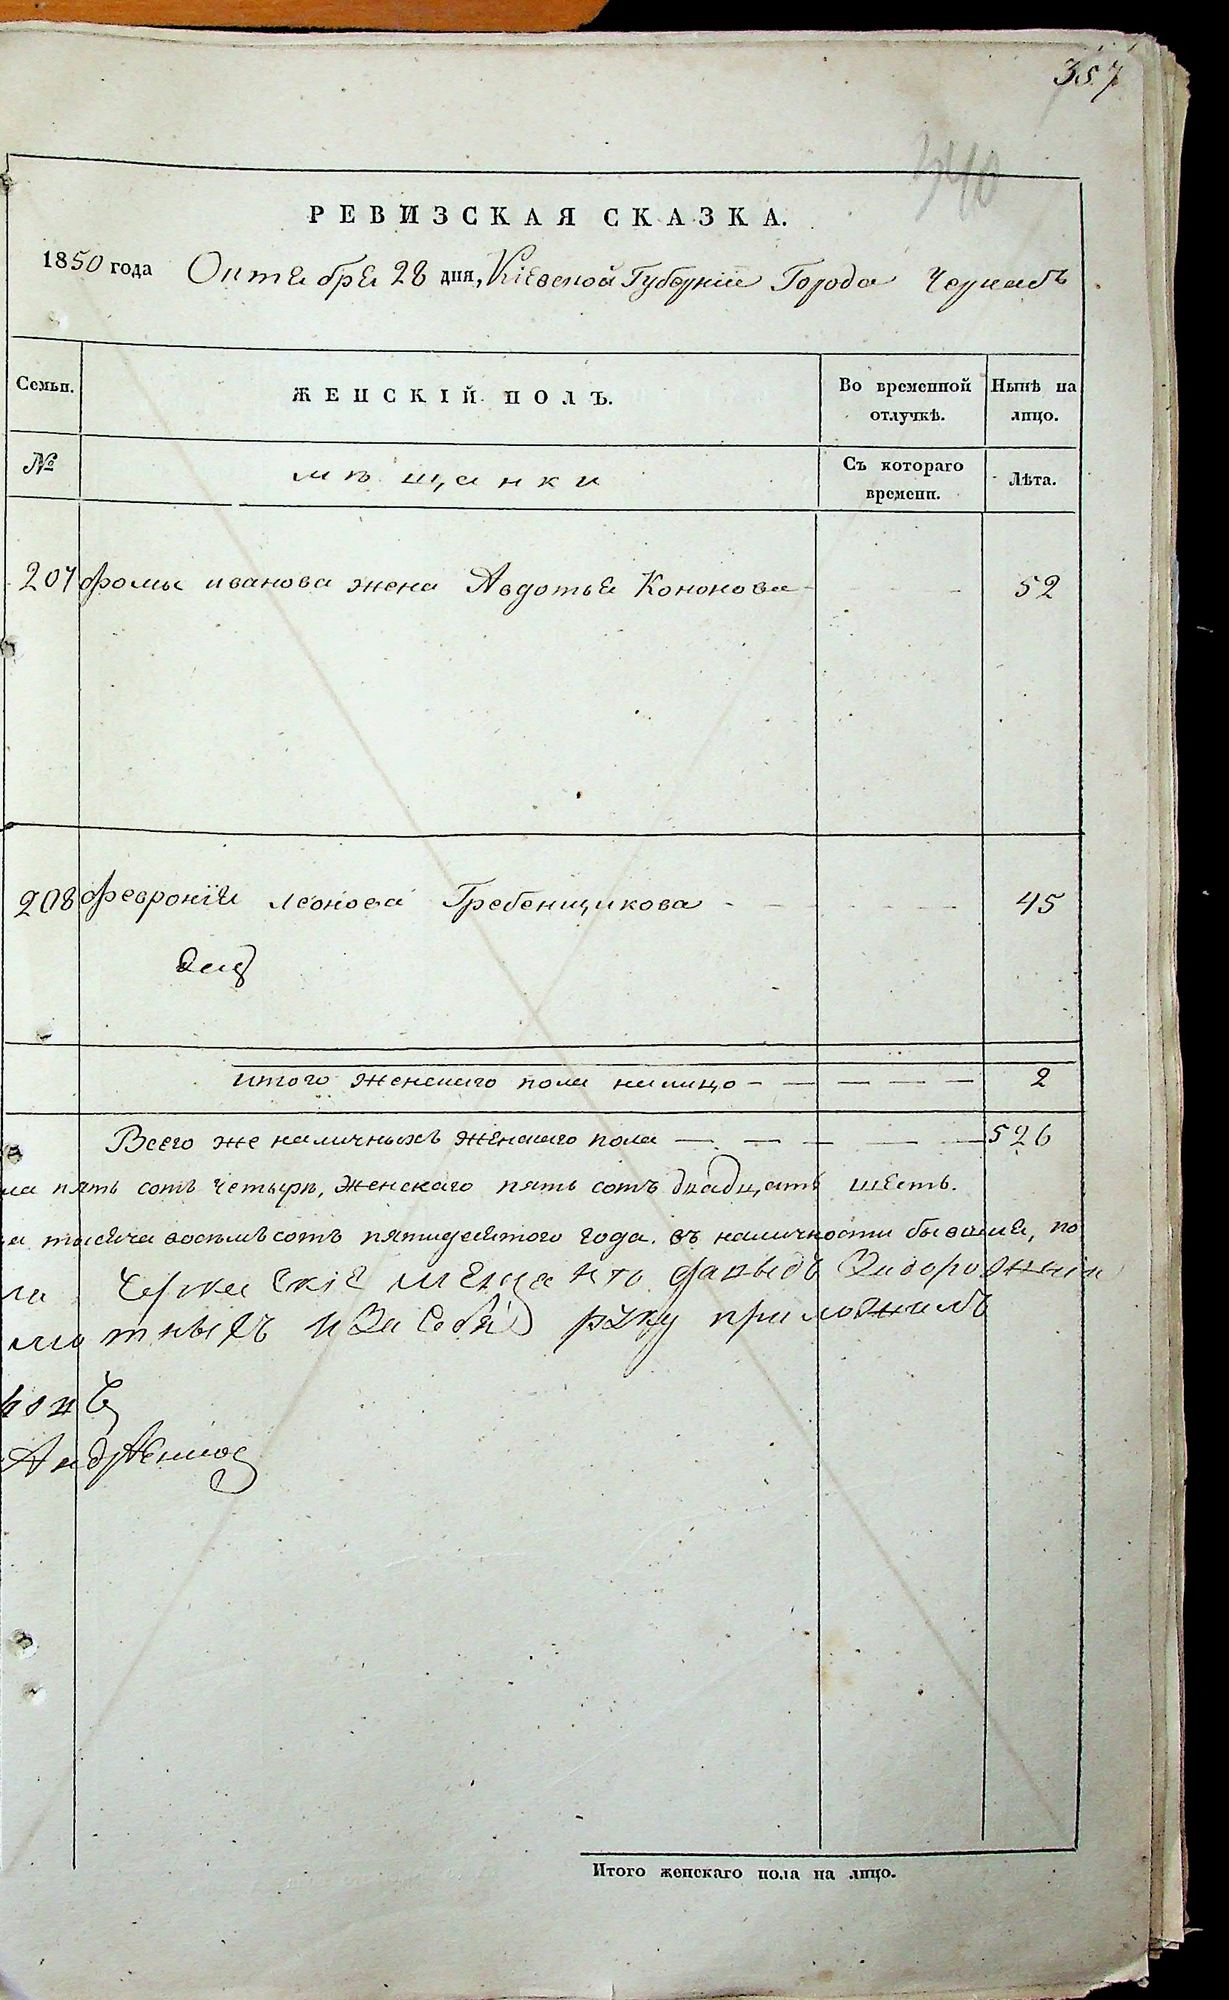 357
340
РЕВИЗСКАЯ СКАЗКА.
1850 года Октября 28 дня, Кіевской Губерніи Города Черкасъ
Семьи. ЖЕНСКІЙ ПОЛЪ. Во временной отлучкѣ. Нынѣ на лицо.
№ мѣщанки Съ котораго времени. Лѣта.
207 Фомы иванова жена Авдотья Кононова 52
208 Февронія Леонова Гребенщикова 45
итого женскаго пола на лицо 2
Всего же наличныхъ женскаго пола 526
ла пять сотъ четыри, женскаго пять сотъ двадцать шесть.
а тысяча восемьсотъ пятидесятого года въ наличности бывшия, по
Черкаскіе мещане что
мотныхъ и За себя руку приложилъ